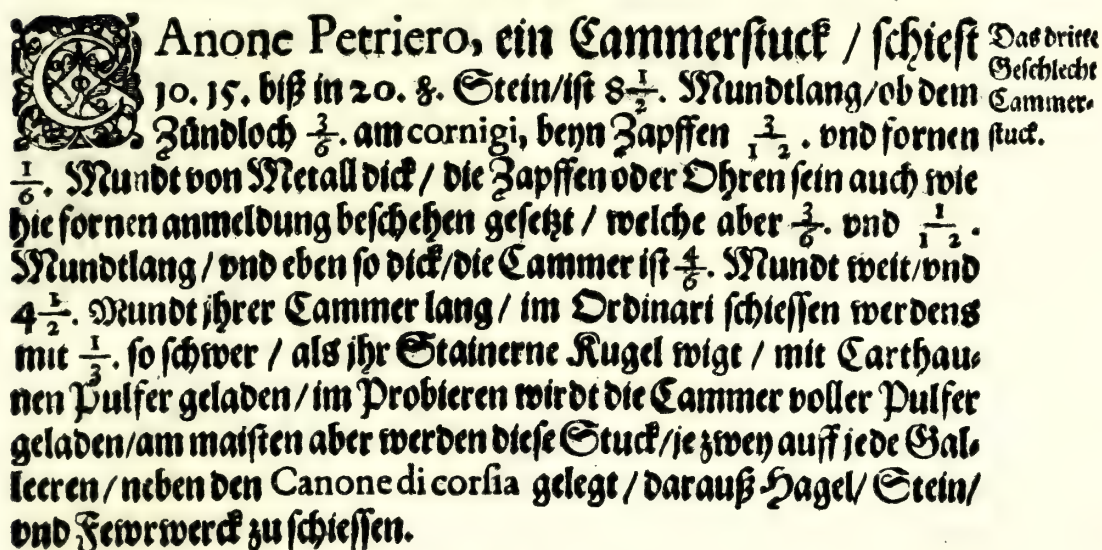 CAnone Petriero, ein Cammerſtuck / ſchieſt
10. 15. biß in 20. ℔. Stein/iſt 8 1/2. Mundtlang/ob dem
Zündloch 3/6. am cornigi, beyn Zapffen 3/12. vnd fornen
1/6. Mundt von Metall dick / die Zapffen oder Ohren ſein auch wie
hie fornen anmeldung beſchehen geſetzt / welche aber 3/6. vnd 1/12.
Mundtlang / vnd eben ſo dick/die Cammer iſt 4/6. Mundt weit/vnd
4 1/2. Mundt jhrer Cammer lang / im Ordinari ſchieſſen werdens
mit 1/3. ſo ſchwer / als jhr Stainerne Kugel wigt / mit Carthau⸗
nen Pulfer geladen / im Probieren wirdt die Cammer voller Pulfer
geladen/am maiſten aber werden dieſe Stuck/je zwey auff jede Gal⸗
leeren / neben den Canone di corſia gelegt / darauß Hagel/ Stein/
vnd Fewrwerck zu ſchieſſen.
Das dritte
Geſchlecht
Cammer⸗
ſtuck.